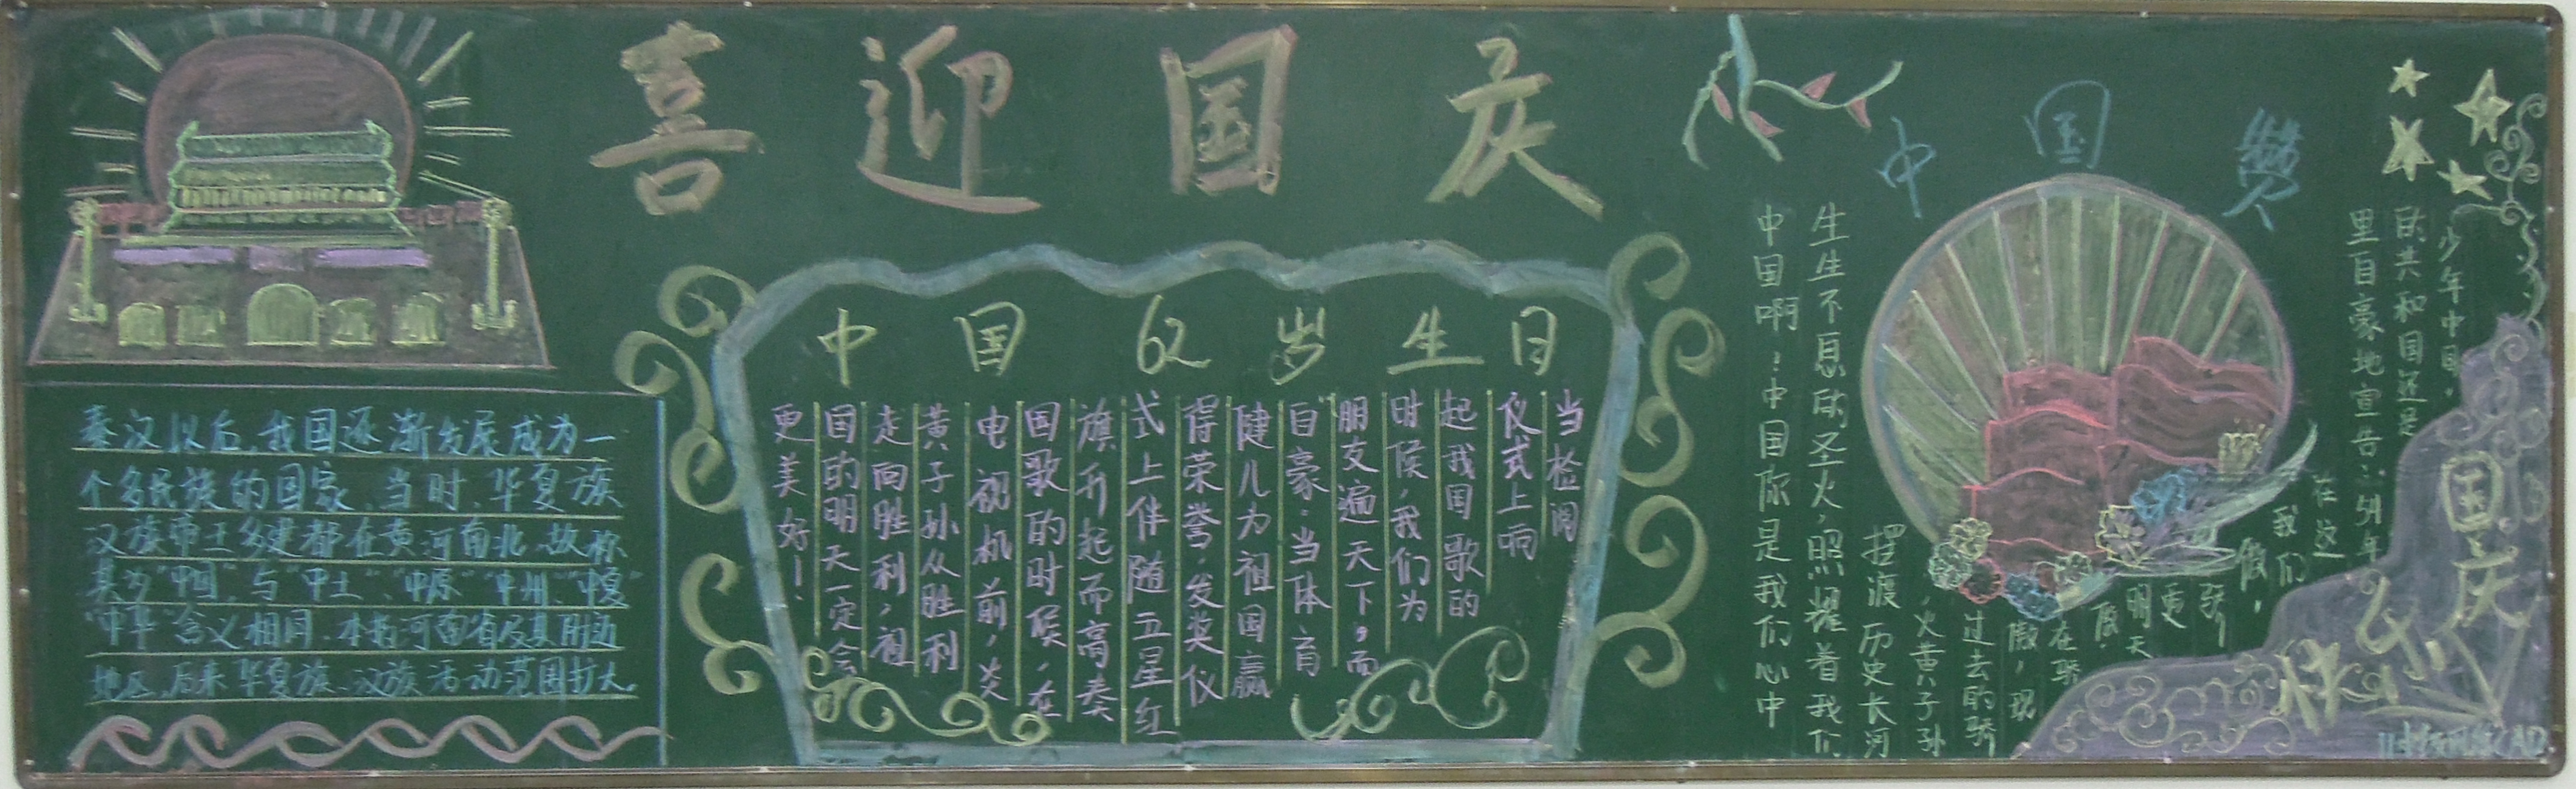 喜迎国庆
秦汉以后,我国逐渐发展成为一
个多民族的国家,当时,华夏族
汉族帝王多建都在黄河南北,故称
其为"中国",与"中土""中原""中州""中夏"
"中华"含义相同,本指河南省及其附近
地区,后来华夏族、汉族活动范围扩大。
中国62岁生日
当检阅
仪式上响
起我国歌的
时候,我们为
朋友遍天下,而
自豪:当体育
健儿为祖国赢
得荣誉,发奖仪
式上伴随五星红
旗升起而高奏
国歌的时候,在
电视机前,炎
黄子孙从胜利
走向胜利,祖
国的明天一定会
更美好!
中国赞
少年中国,
的共和国还是
里自豪地宣告:
在这
我们
傲,
骄
更
明天
在骄
傲,现
过去的骄
黄子孙
摆渡历史长河
生生不息的圣火,照耀着我们
中国啊!中国你是我们心中
国庆
快乐